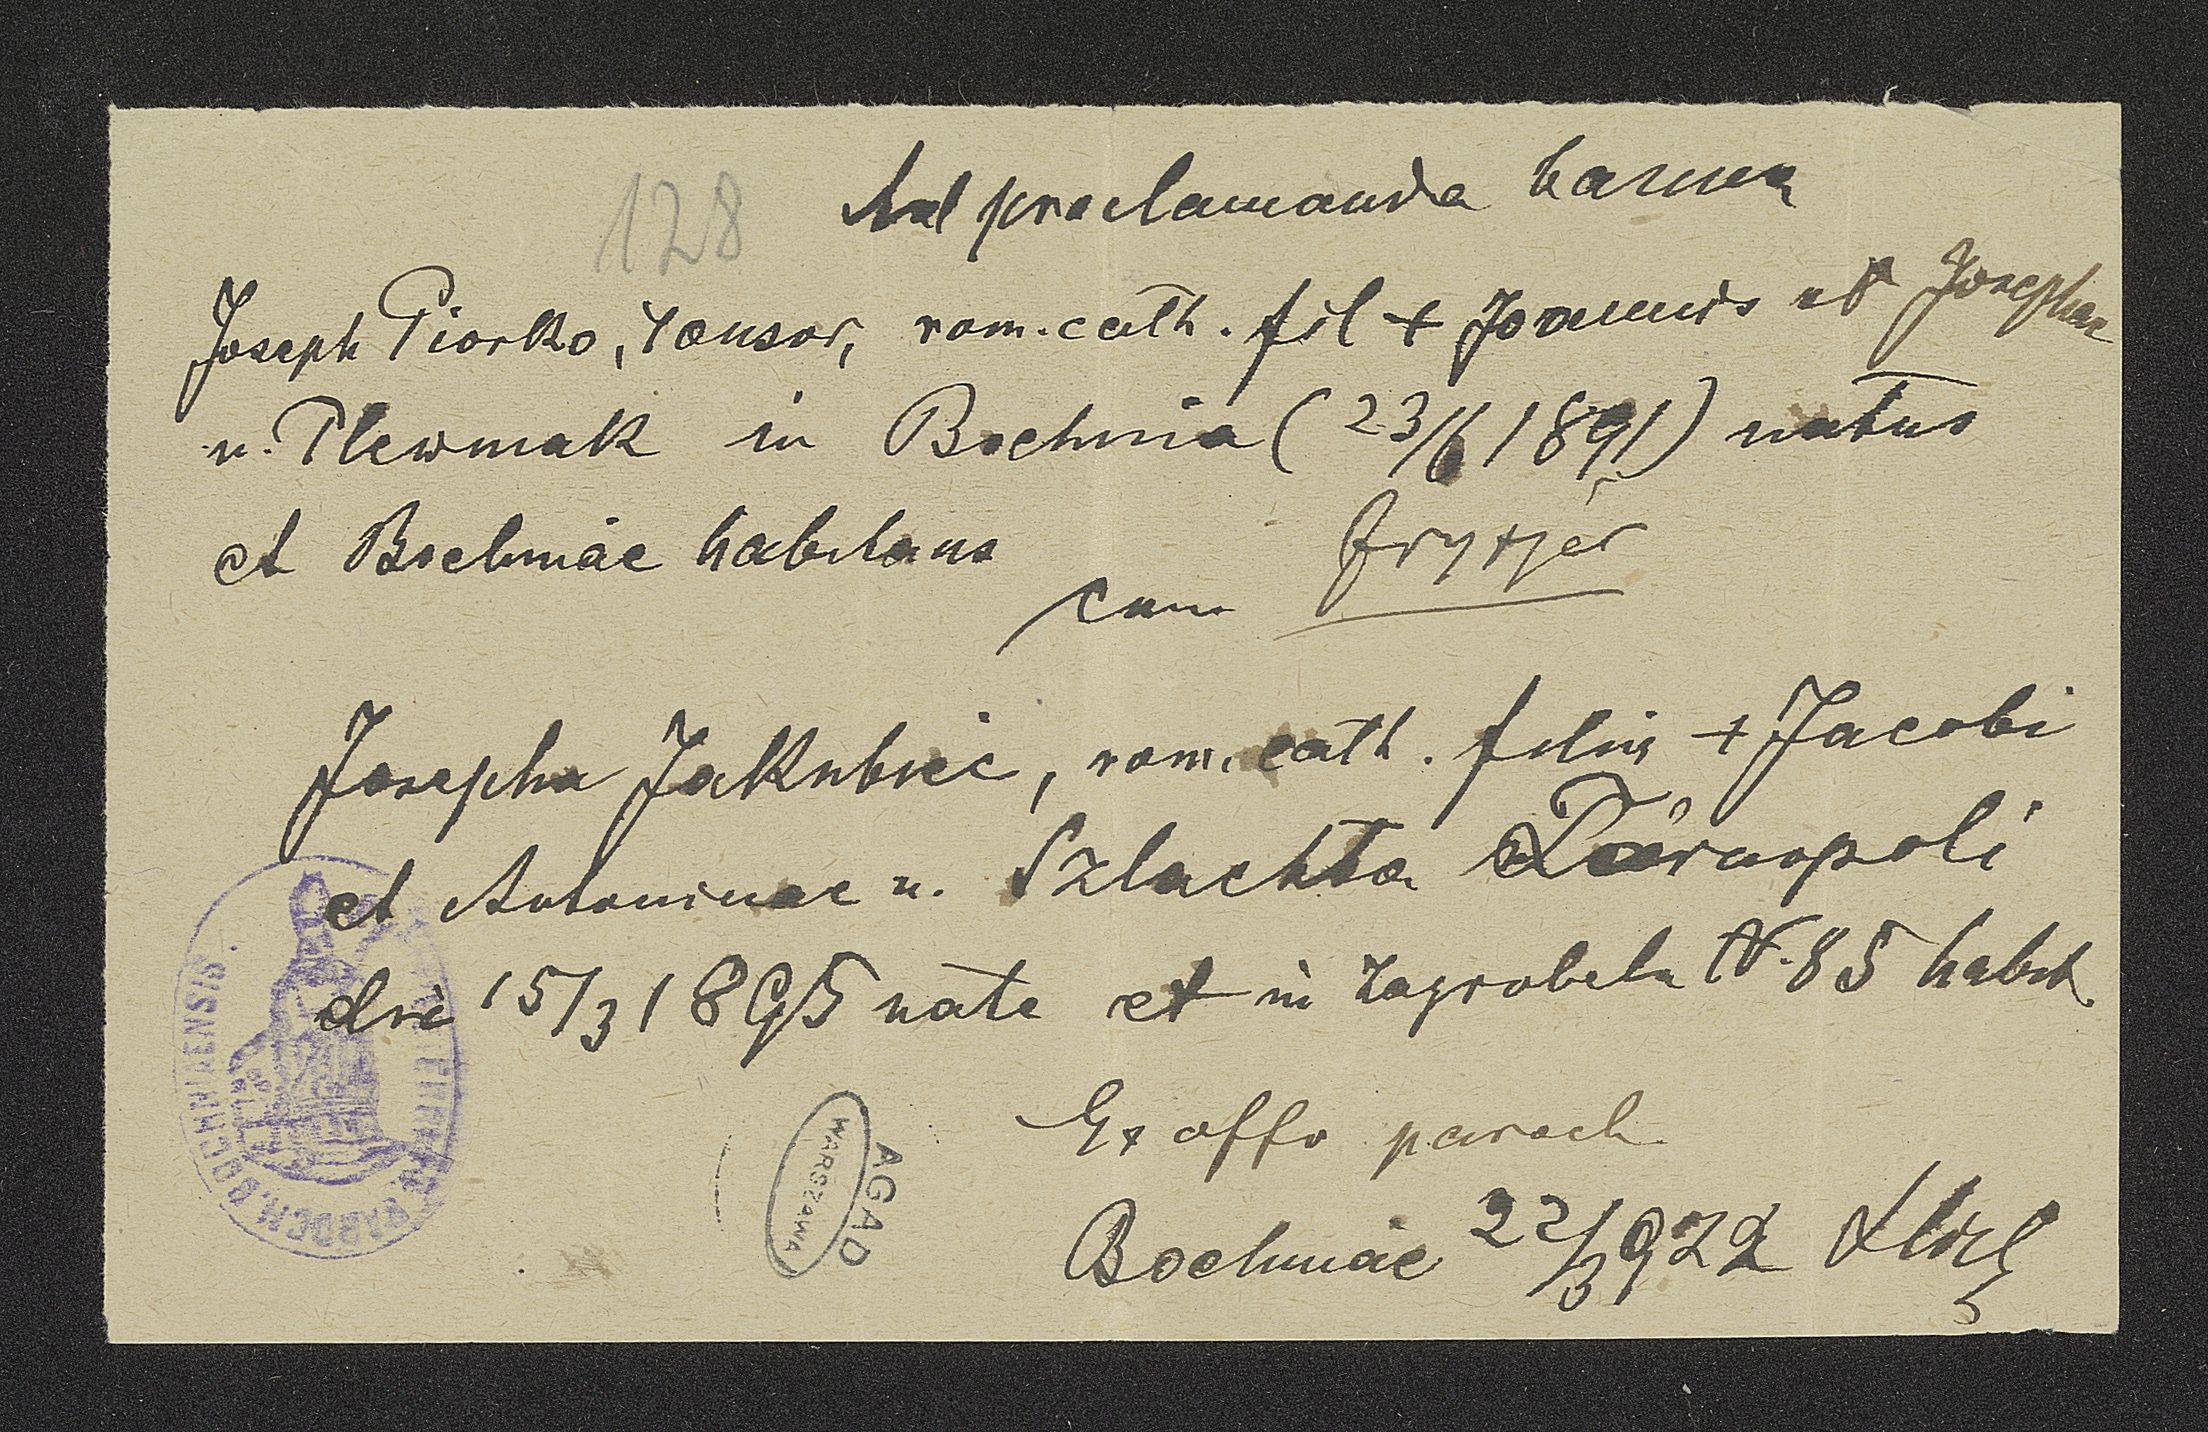 128
Ad proclamanda banna
Joseph Piorko, tonsor, rom. cath. fil + Joannis et Josephae
n. Plewniak in Bochnia (23/6 1891) natus
et Bochniae habitans
fryzjer
cum
Josepha Jakubiec, rom. cath. filia + Jacobi
et Antoninae n. Szlachta Tarnopoli
die 15/3 1895 nata et in Zagrobela N. 85 habit.
Ex offo paroch.
Bochniae 22/3 922
PAROCH. BOCHNIAENSIS.
AGAD
WARSZAWA